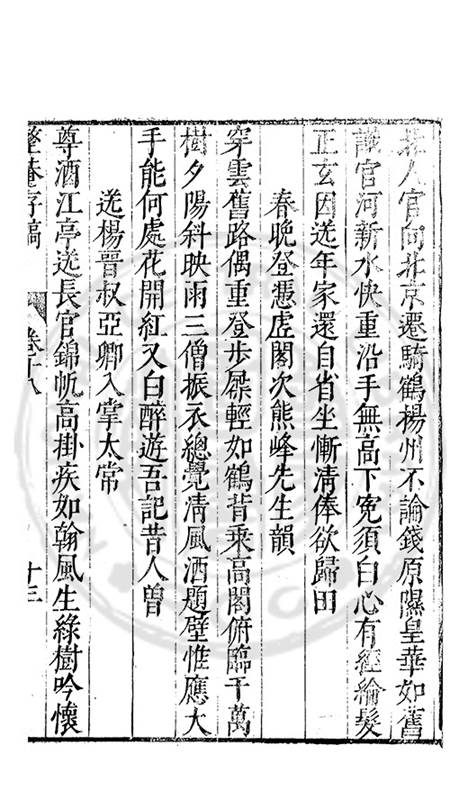 北人官向北京遷騎鶴楊州不論錢原隰皇華如舊
識官河新水快重沿手無高下寃須白心有經綸髮
正玄因送年家還自省坐慚淸俸欲歸田
春晚登憑虛閣次熊峰先生韻
穿雲舊路偶重登步屧輕如鶴背乘高閣俯臨千萬
樹夕陽斜映雨三僧振衣總覺淸風酒題壁惟應大
手能何處花開紅又白醉遊吾記昔人曾
送楊晉叔亞卿入掌太常
尊酒江亭送長官錦帆高掛疾如翰風生綠樹吟懷
整菴存稿 卷十八 十三